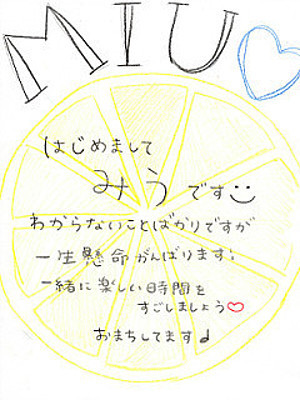 MIU♡
はじめまして
みうです
わからないことばかりですが
一生懸命がんばります!
一緒に楽しい時間を
すごしましょう♡
おまちしてます♩